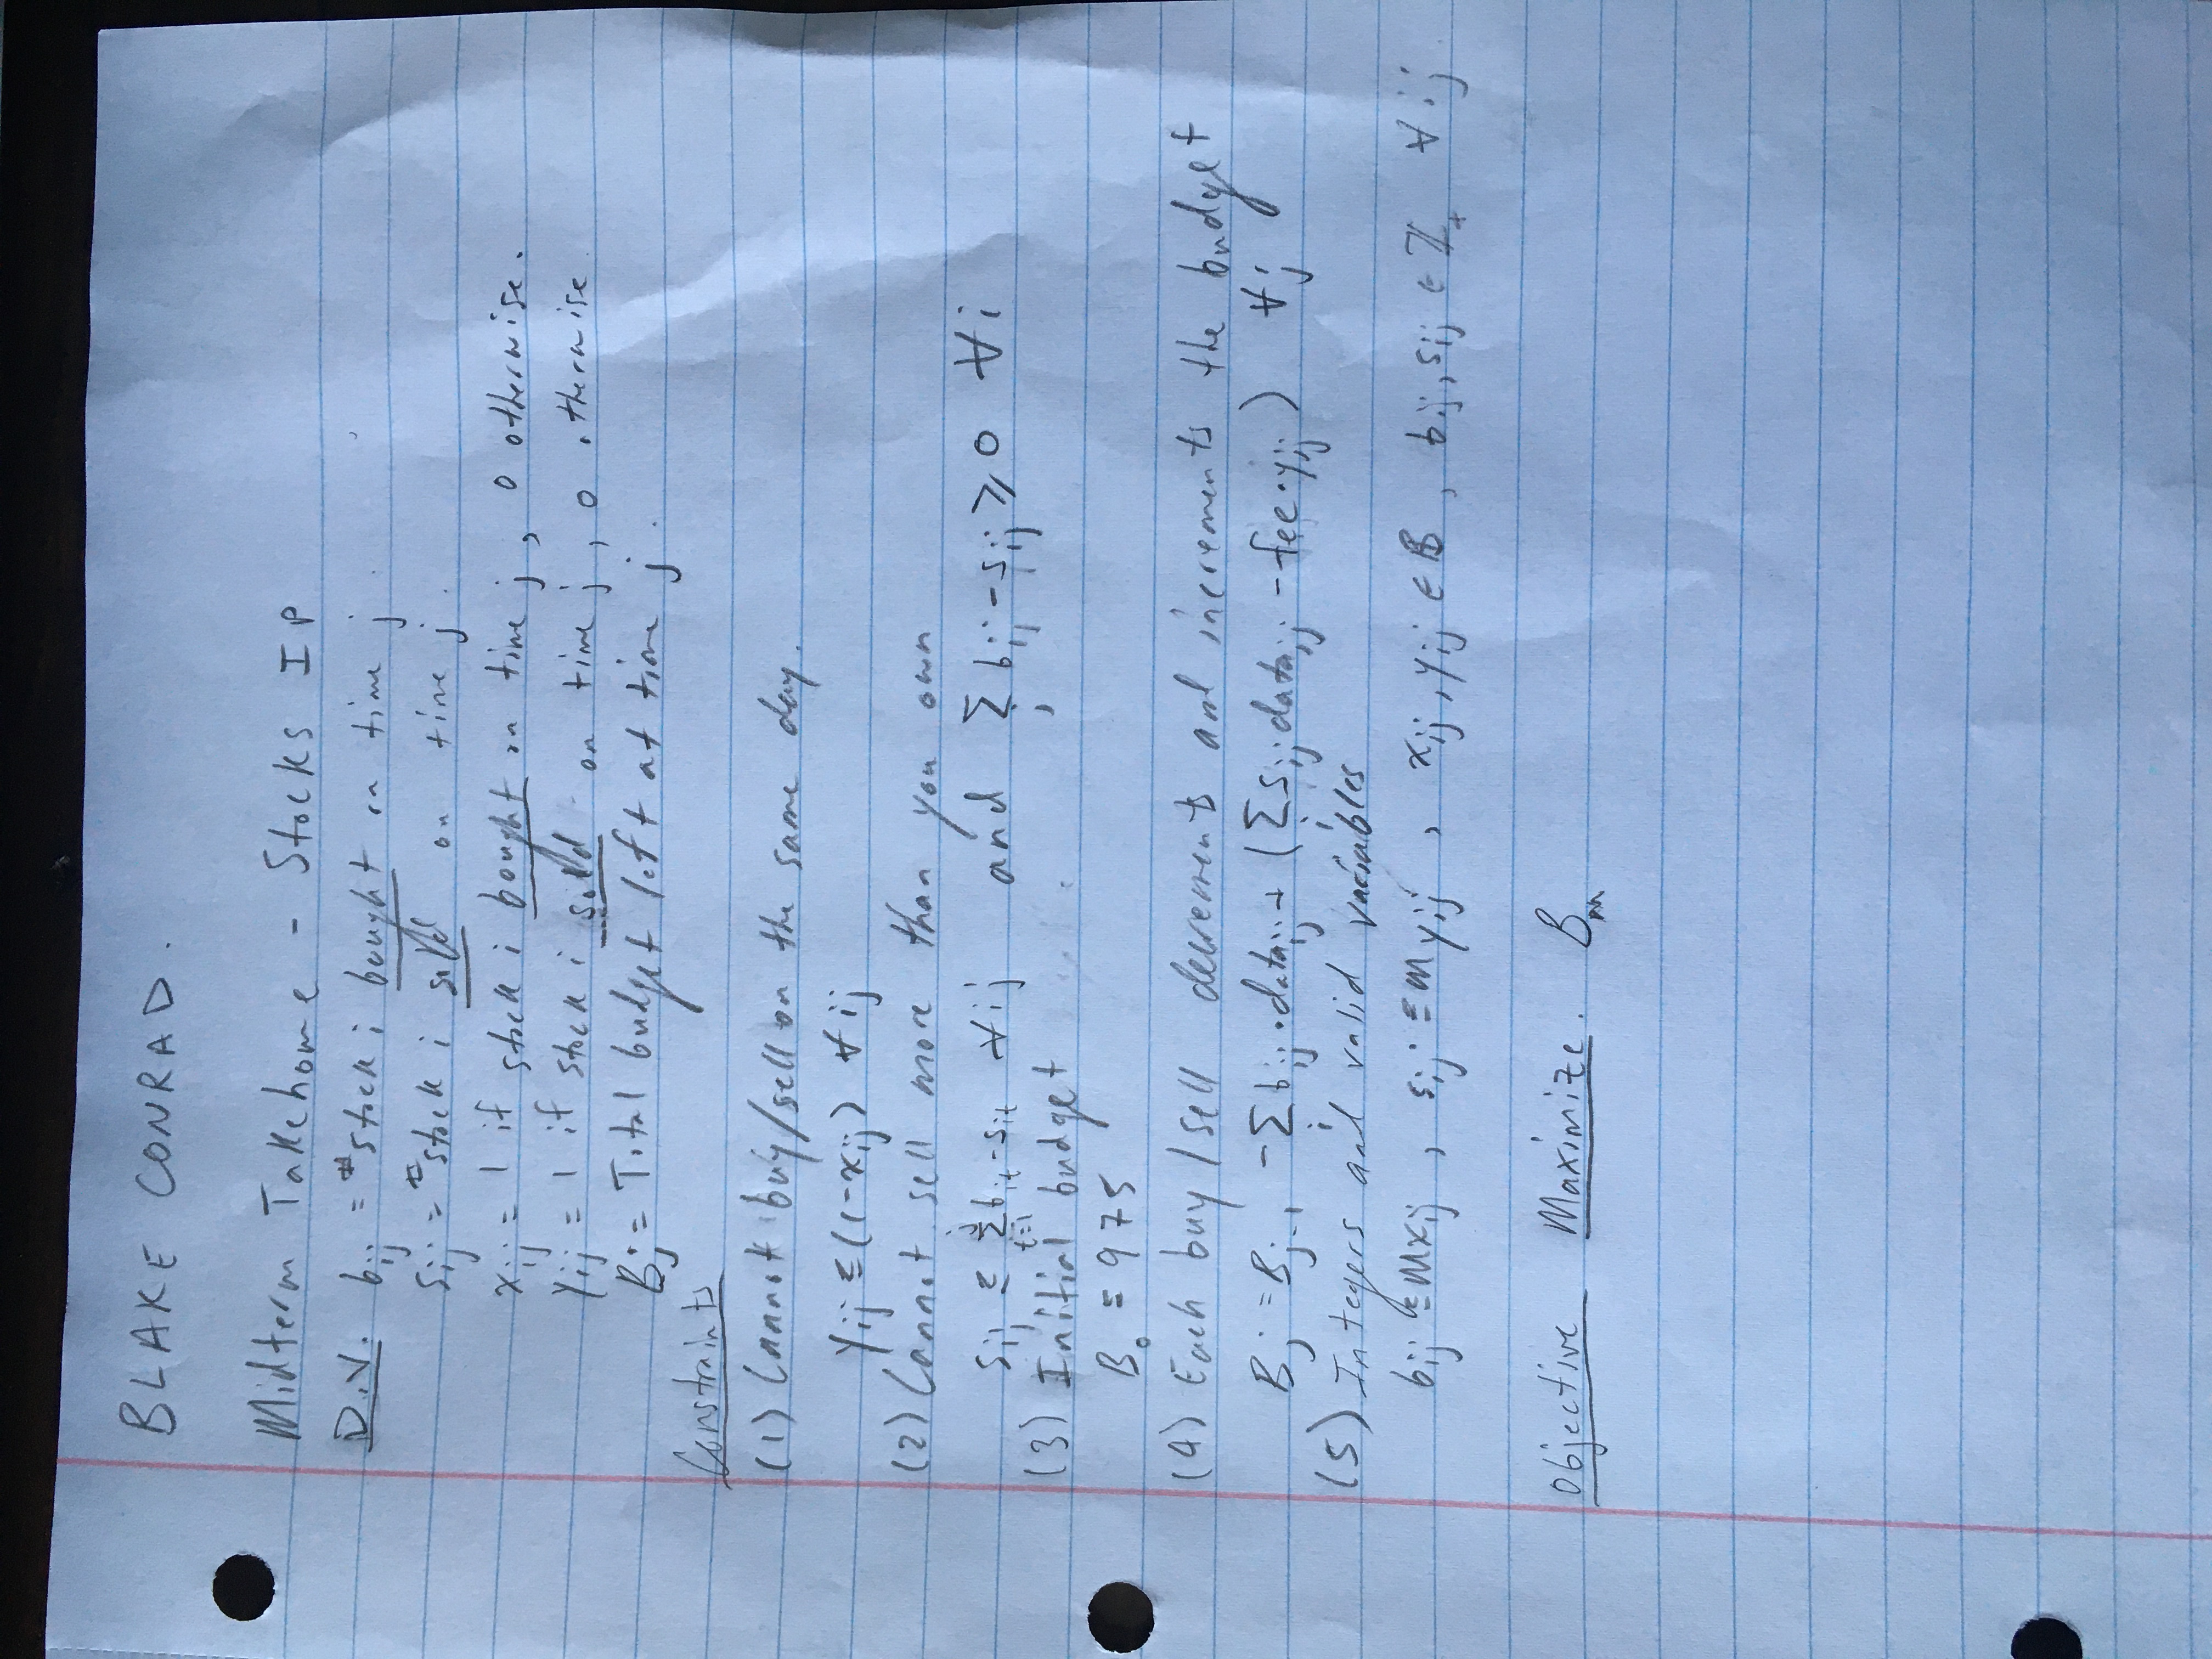 BLAKE CONRAD.
Midterm Takehome - Stocks IP
D.V. bij = #stock i bought on time j.
sij = #stock i sold on time j.
xij = 1 if stock i bought on time j, 0 otherwise.
yij = 1 if stock i sold on time j, 0 otherwise.
Bj = Total budget left at time j.
Constraints
(1) Cannot buy/sell on the same day.
yij ≤ (1-xij) ∀ij
(2) Cannot sell more than you own
sij ≤ Σ_{t=1}^{j} bit - sit ∀ij and Σ_j bij - sij ≥ 0 ∀i
(3) Initial budget
B0 = 975
(4) Each buy/sell decrements and increments the budget
Bj = Bj-1 - Σ_i bij·dataij + (Σ_i sij dataij - fee·yij) ∀j
(5) Integers and valid variables
bij ≤ Mxij, sij ≤ Myij, xij, yij ∈ 𝔹, bij, sij ∈ ℤ+ ∀ij
Objective Maximize. Bm